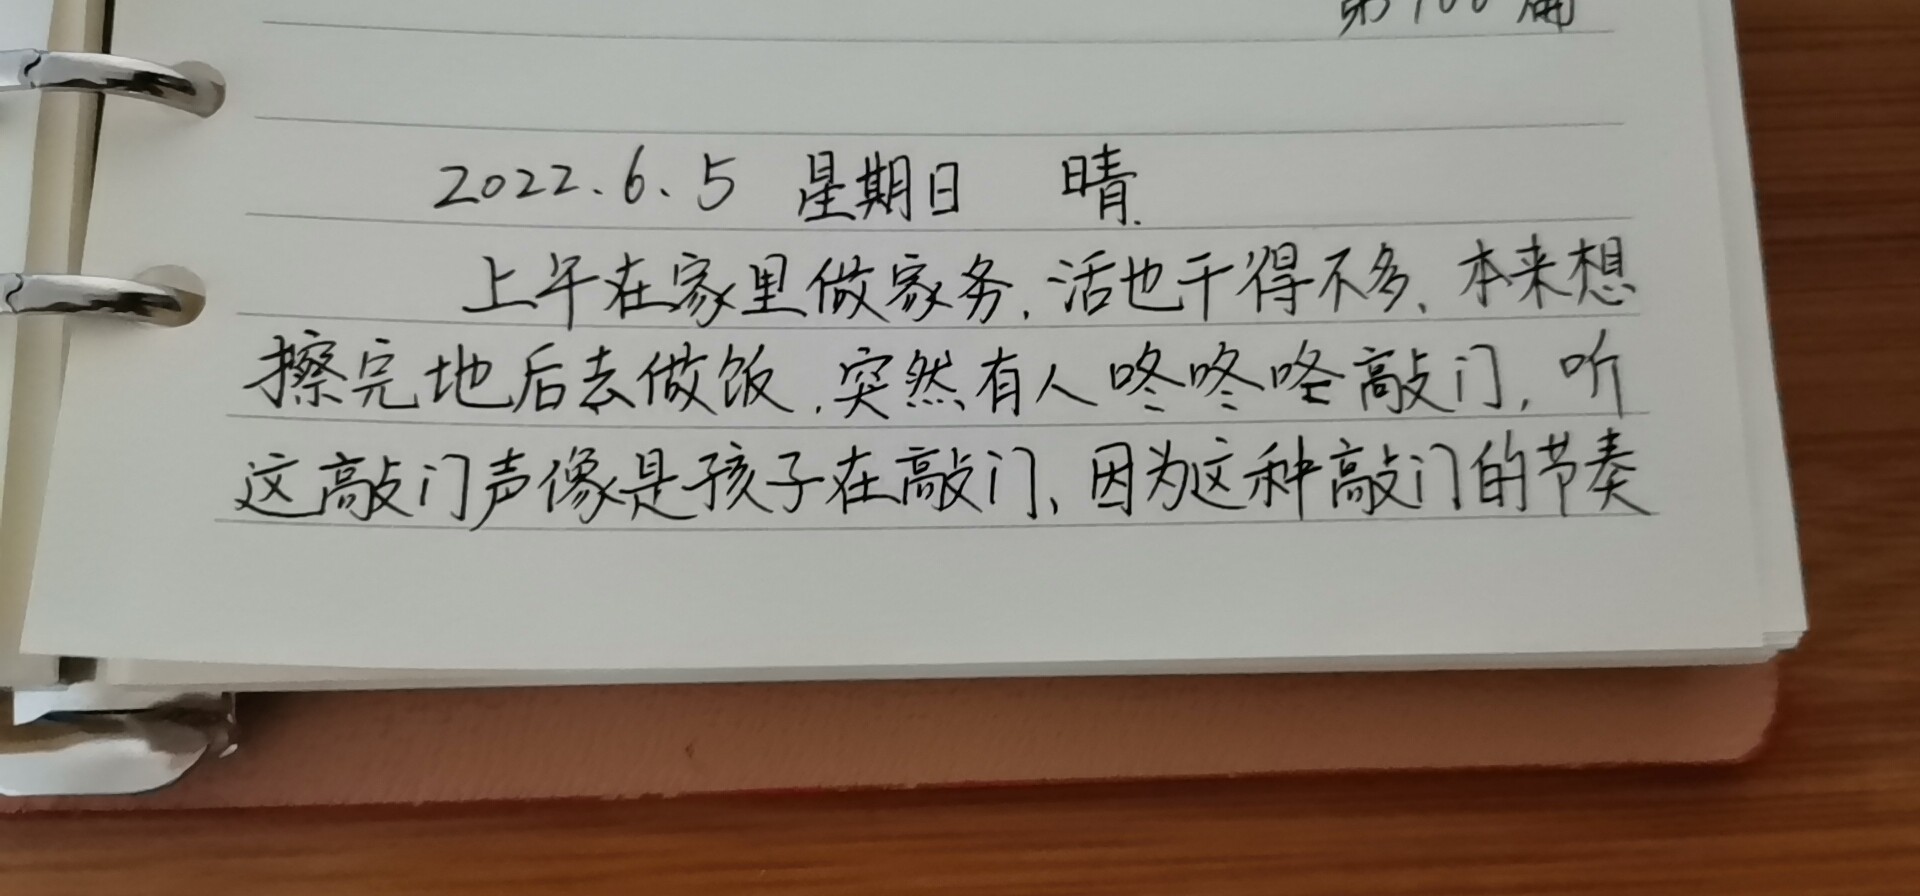 第100篇
2022.6.5 星期日 晴.
上午在家里做家务,活也干得不多、本来想
擦完地后去做饭,突然有人咚咚咚敲门,听
这敲门声像是孩子在敲门、因为这种敲门的节奏